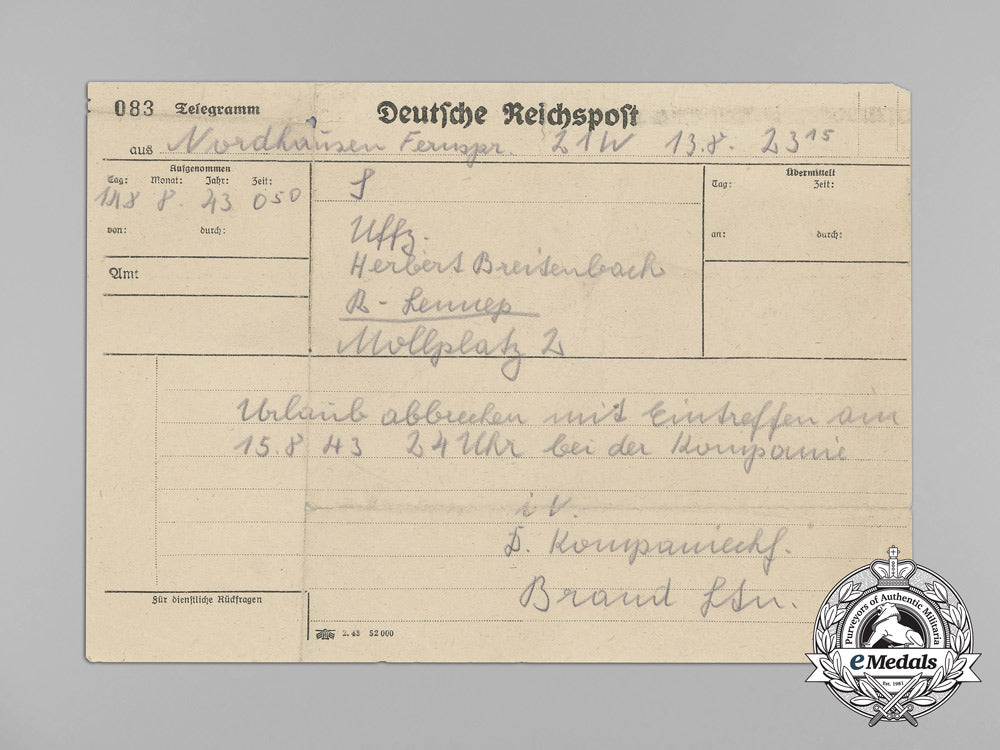 083 Telegramm Deutsche Reichspost
aus Nordhausen Fernspr. 21W 13.8. 23 15
Aufgenommen
Tag: Monat: Jahr: Zeit:
8. 43 050
von: durch:
Amt
S
Uffz.
Herbert Breitenbach
R - Lennep
Mollplatz 2
Übermittelt
Tag: Zeit:
an: durch:
Urlaub abbrechen mit Eintreffen am
15.8 43 24 Uhr bei der Kompanie
i V.
D. Kompaniechf.
Brand Ltn.
Für dienstliche Rückfragen
2. 43 52 000
Purveyors of Authentic Militaria
eMedals
Est. 1981